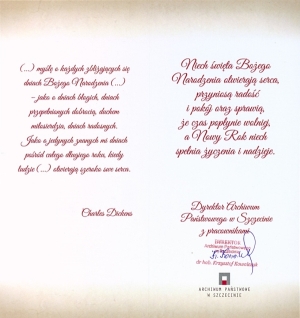 (...) myślę o każdych zbliżających się
dniach Bożego Narodzenia (...)
– jako o dniach błogich, dniach
przepełnionych dobrocią, duchem
miłosierdzia, dniach radosnych.
Jako o jedynych znanych mi dniach
pośród całego długiego roku, kiedy
ludzie (...) otwierają szeroko swe serca.
Charles Dickens
Niech święta Bożego
Narodzenia otwierają serca,
przyniosą radość
i pokój oraz sprawią,
że czas popłynie wolniej,
a Nowy Rok niech
spełnia życzenia i nadzieje.
Dyrektor Archiwum
Państwowego w Szczecinie
z pracownikami
DYREKTOR
Archiwum Państwowego
dr hab. Krzysztof Kowalczyk
ARCHIWUM PAŃSTWOWE
W SZCZECINIE